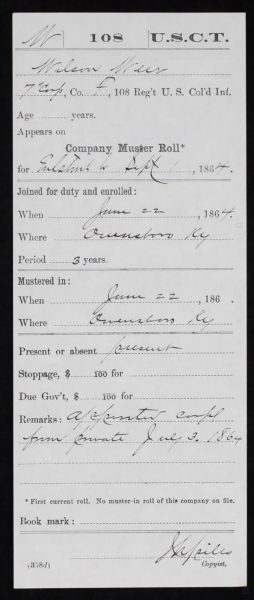 W | 108 | U.S.C.T.
Wilson Weir
7 Corp, Co. F, 108 Reg't U. S. Col'd Inf.
Age years.
Appears on
Company Muster Roll*
for Enlstmt to Sept 1, 1864.
Joined for duty and enrolled:
When June 22, 1864.
Where Owensboro Ky
Period 3 years.
Mustered in:
When June 22, 186 .
Where Owensboro Ky
Present or absent present
Stoppage, $ 100 for
Due Gov't, $ 100 for
Remarks: appointed corpl
from private July 3. 1864
* First current roll. No muster-in roll of this company on file.
Book mark:
(358d) Copyist.